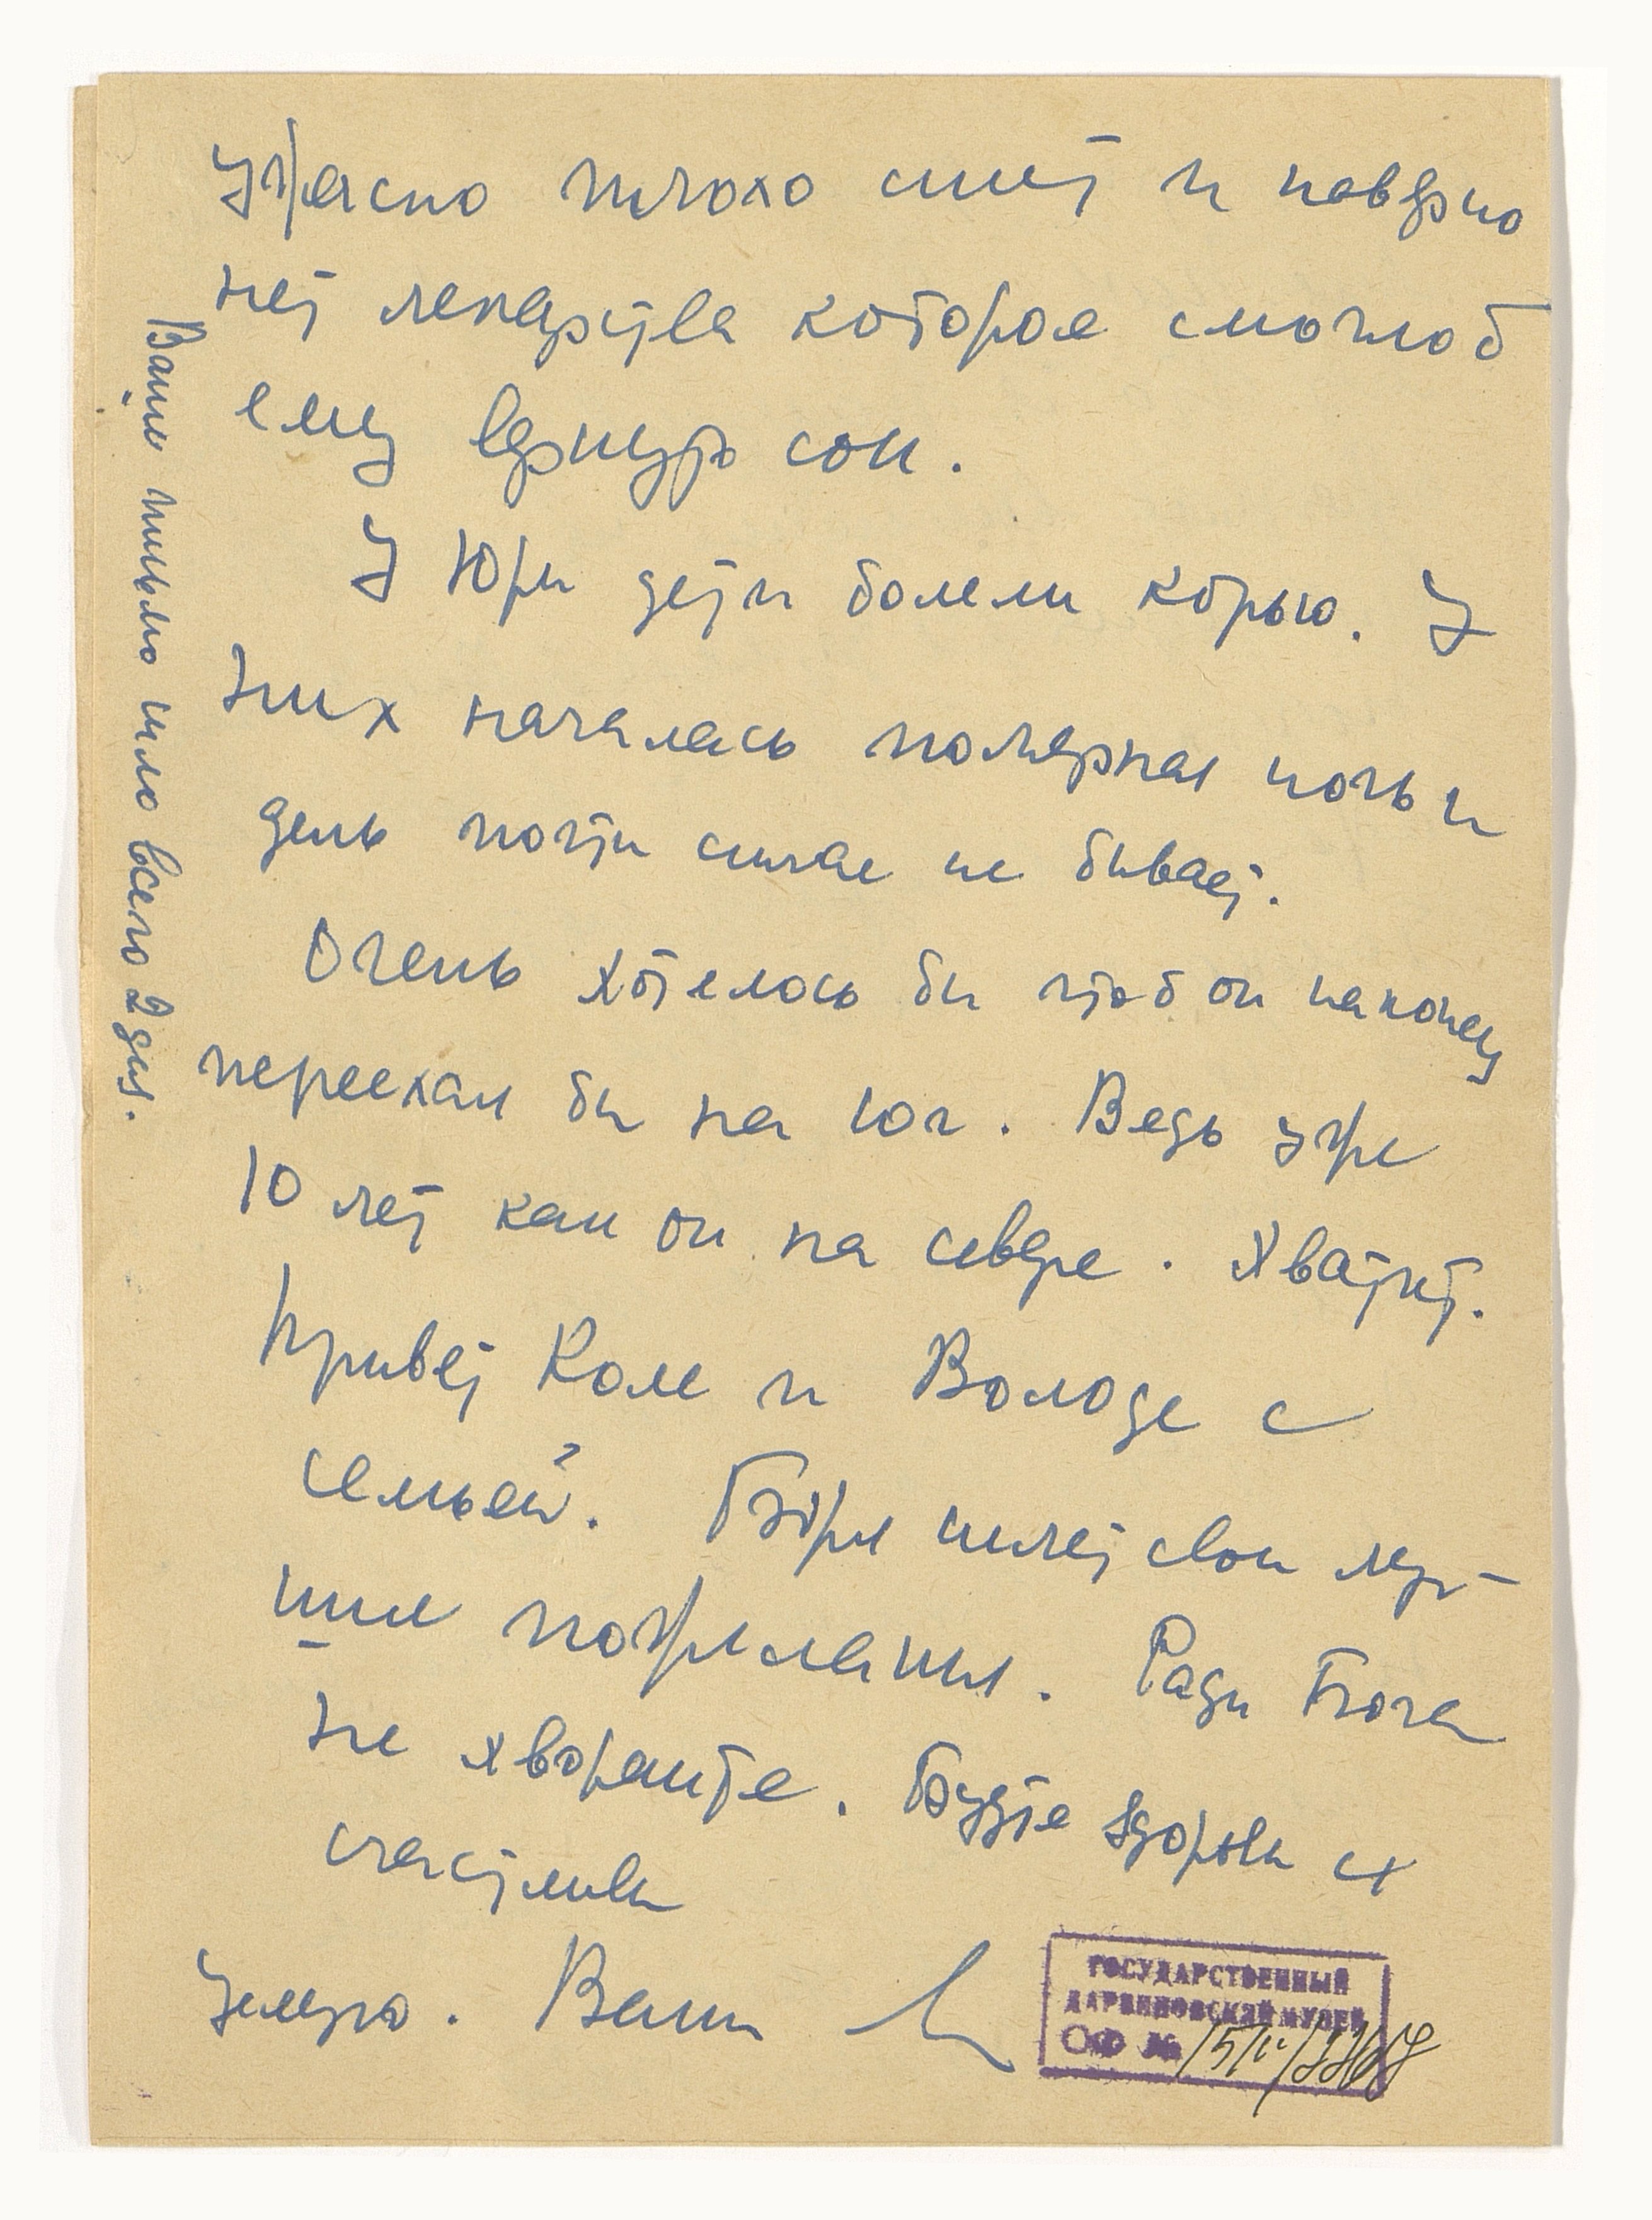 ужасно плохо спит и наверно
нет лекарства которое смоглоб
ему вернуть сон.
У Юры дети болели корью. У
них началась полярная ночь и
день почти считае не бывает.
Очень хотелось бы чтоб он наконец
переехал бы на юг. Ведь уже
10 лет как он на севере. Хватит.
Привет Коле и Володе с
семьей. Боря шлет свои луч-
шие пожелания. Ради Бога
не хворайте. Будьте здоровы и
счастливы
Ваш
Ваше письмо шло всего 2 дня.
ГОСУДАРСТВЕННЫЙ
ДАРВИНОВСКИЙ МУЗЕЙ
ОФ №